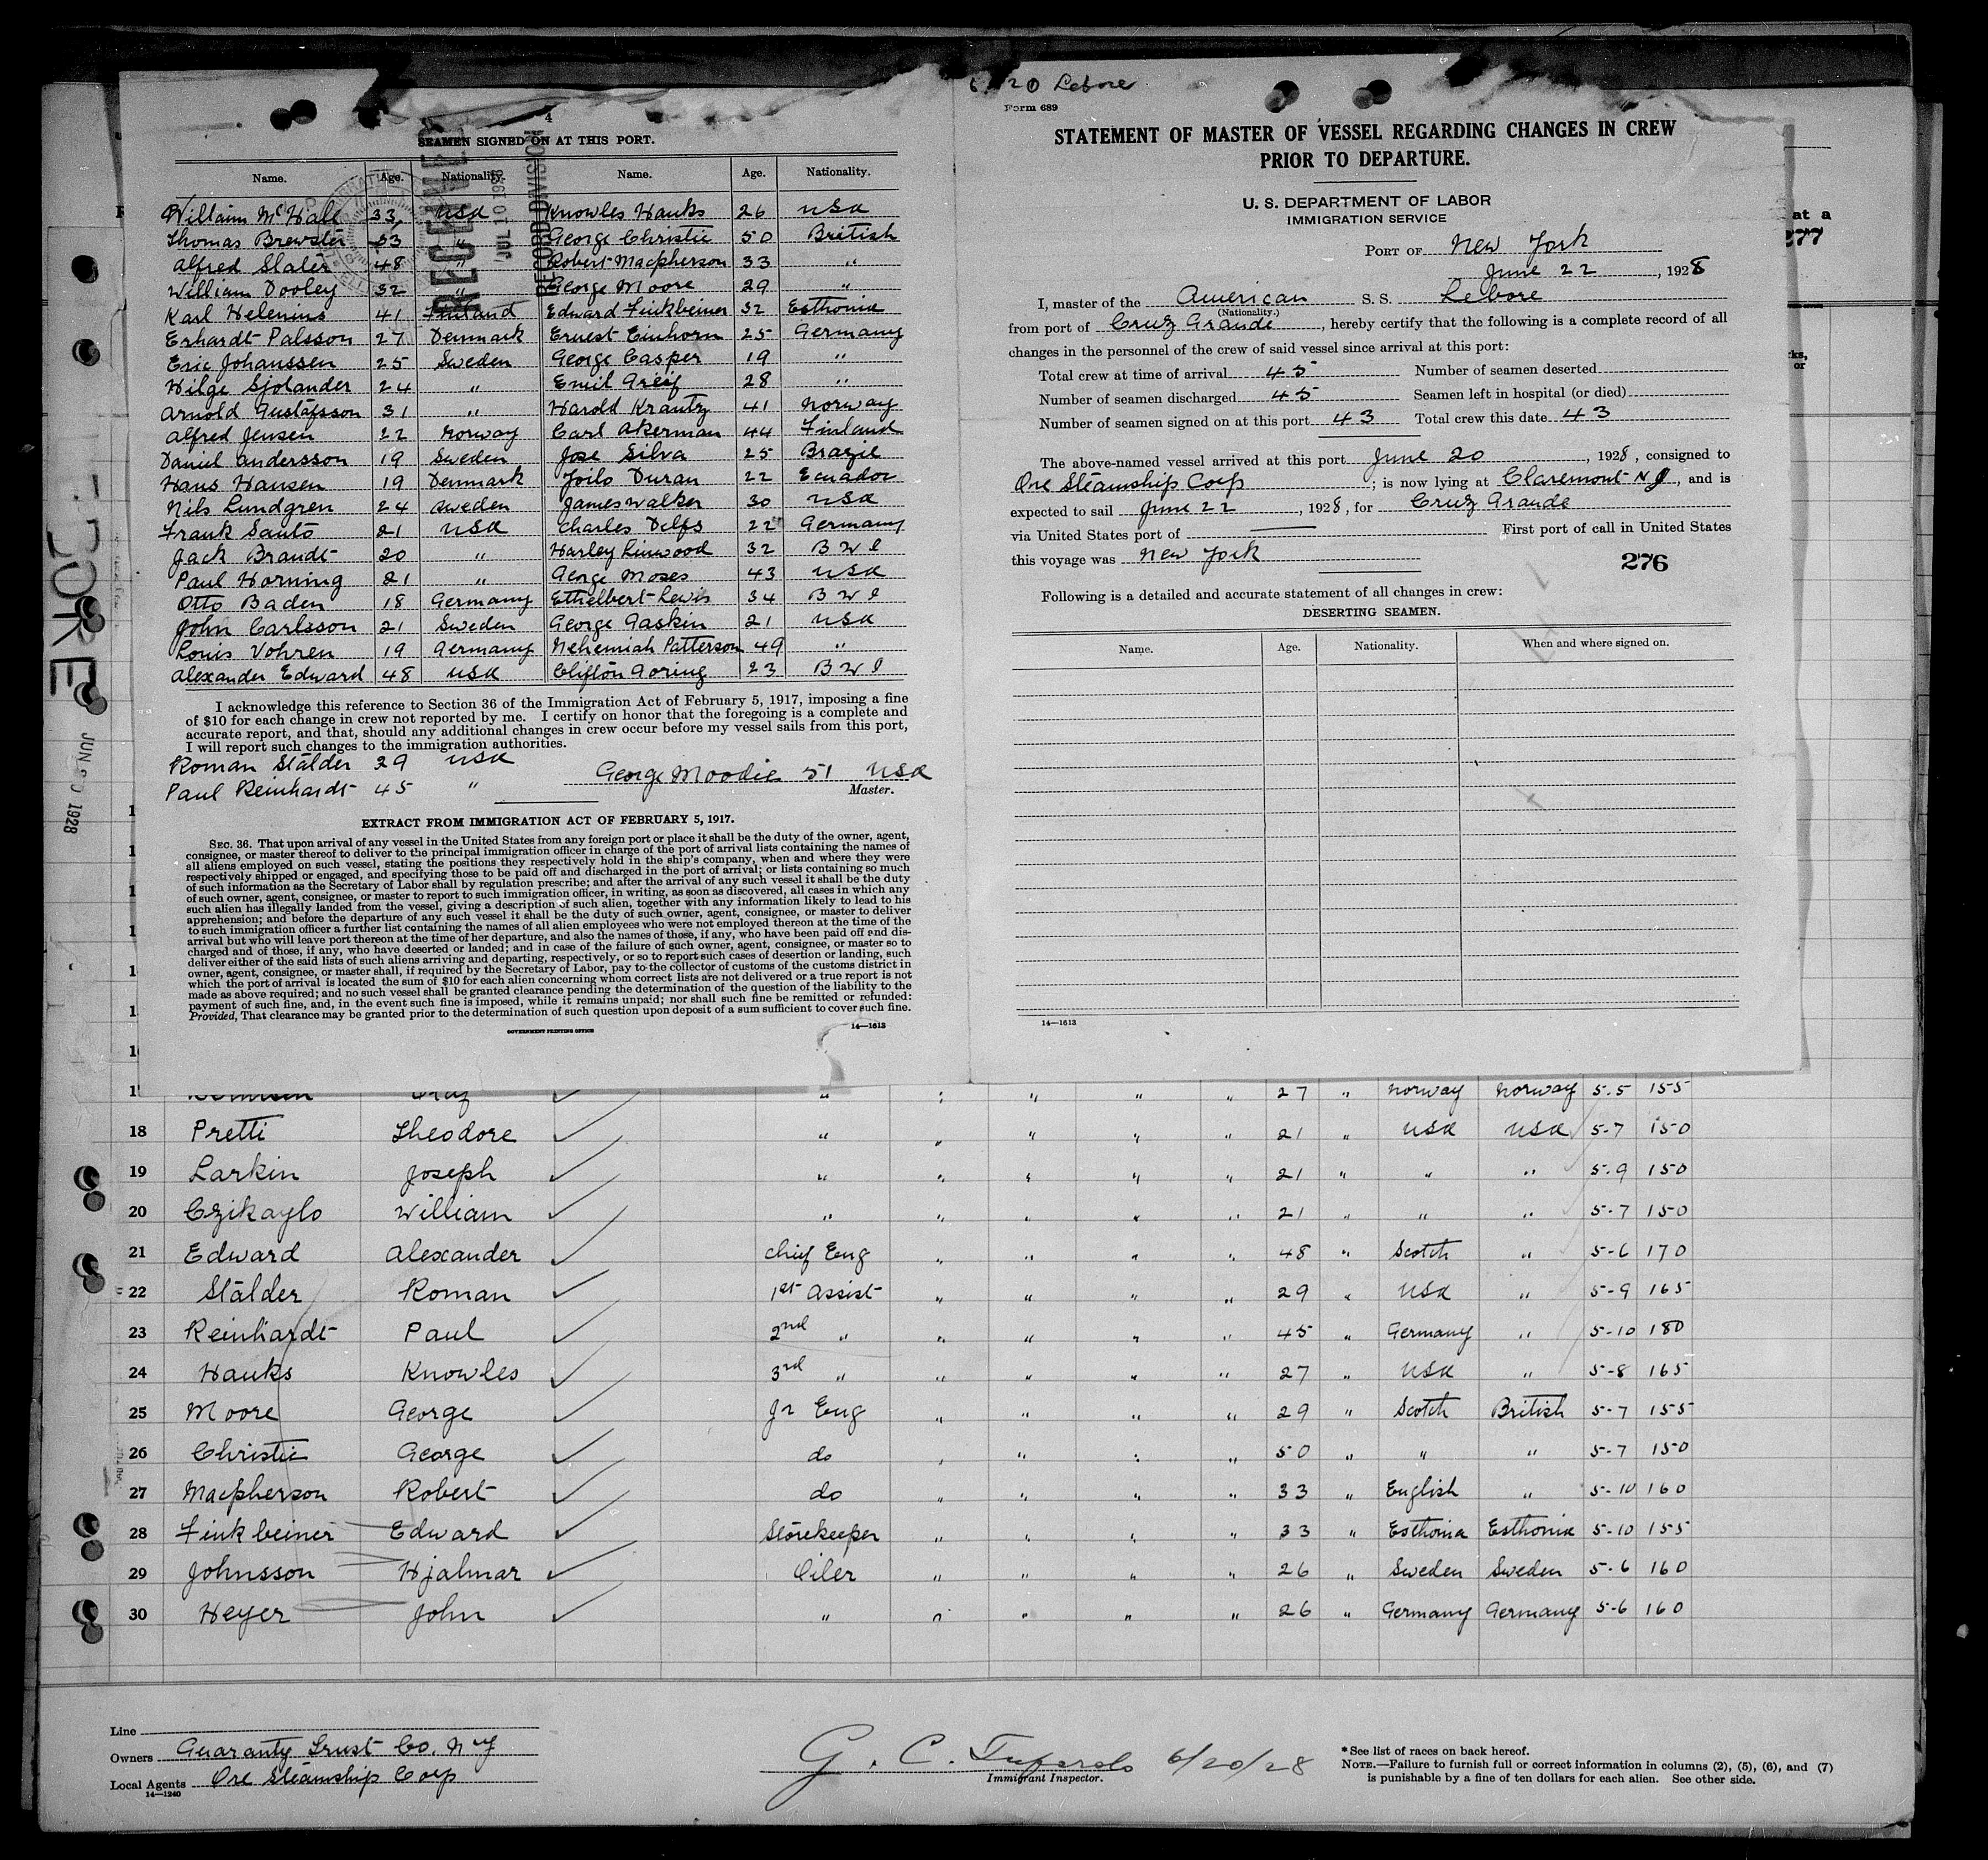 4
SEAMEN SIGNED ON AT THIS PORT.
Name. Age. Nationality. Name. Age. Nationality.
William McHale 33 USA Knowles Hanks 26 USA
Thomas Brewster 53 " George Christie 50 British
Alfred Slater 48 " Robert Macpherson 33 "
William Dooley 32 " George Moore 29 "
Karl Helenius 41 Finland Edward Finkbeiner 32 Esthonia
Erhardt Palsson 27 Denmark Ernest Einhorn 25 Germany
Eric Johanssen 25 Sweden George Casper 19 "
Hilge Sjolander 24 " Emil Greif 28 "
Arnold Gustafsson 31 " Harold Krantz 41 Norway
Alfred Jensen 22 Norway Carl Akerman 44 Finland
Daniel Andersson 19 Sweden Jose Silva 25 Brazil
Hans Hansen 19 Denmark Joilo Duran 22 Ecuador
Nils Lundgren 24 Sweden James Walker 30 USA
Frank Santo 21 USA Charles Delfs 22 Germany
Jack Brandt 20 " Harley Linwood 32 B W I
Paul Horning 21 " George Moses 43 USA
Otto Baden 18 Germany Ethelbert Lewis 34 B W I
John Carlsson 21 Sweden George Gaskin 21 USA
Louis Vohren 19 Germany Nehemiah Patterson 49 "
Alexander Edward 48 USA Clifton Goring 23 B W I
RECEIVED
JUL 10 1928
RECORD DIVISION
I acknowledge this reference to Section 36 of the Immigration Act of February 5, 1917, imposing a fine
of $10 for each change in crew not reported by me. I certify on honor that the foregoing is a complete and
accurate report, and that, should any additional changes in crew occur before my vessel sails from this port,
I will report such changes to the immigration authorities.
Roman Stalder 29 USA
George Moodie 51 USA
Paul Reinhardt 45 "
Master.
EXTRACT FROM IMMIGRATION ACT OF FEBRUARY 5, 1917.
SEC. 36. That upon arrival of any vessel in the United States from any foreign port or place it shall be the duty of the owner, agent,
consignee, or master thereof to deliver to the principal immigration officer in charge of the port of arrival lists containing the names of
all aliens employed on such vessel, stating the positions they respectively hold in the ship's company, when and where they were
respectively shipped or engaged, and specifying those to be paid off and discharged in the port of arrival; or lists containing so much
of such information as the Secretary of Labor shall by regulation prescribe; and after the arrival of any such vessel it shall be the duty
of such owner, agent, consignee, or master to report to such immigration officer, in writing, as soon as discovered, all cases in which any
such alien has illegally landed from the vessel, giving a description of such alien, together with any information likely to lead to his
apprehension; and before the departure of any such vessel it shall be the duty of such owner, agent, consignee, or master to deliver
to such immigration officer a further list containing the names of all alien employees who were not employed thereon at the time of the
arrival but who will leave port thereon at the time of her departure, and also the names of those, if any, who have been paid off and dis-
charged and of those, if any, who have deserted or landed; and in case of the failure of such owner, agent, consignee, or master so to
deliver either of the said lists of such aliens arriving and departing, respectively, or so to report such cases of desertion or landing, such
owner, agent, consignee, or master shall, if required by the Secretary of Labor, pay to the collector of customs of the customs district in
which the port of arrival is located the sum of $10 for each alien concerning whom correct lists are not delivered or a true report is not
made as above required; and no such vessel shall be granted clearance pending the determination of the question of the liability to the
payment of such fine, and, in the event such fine is imposed, while it remains unpaid; nor shall such fine be remitted or refunded:
Provided, That clearance may be granted prior to the determination of such question upon deposit of a sum sufficient to cover such fine.
GOVERNMENT PRINTING OFFICE
14—1613
20 Lebore
Form 689
STATEMENT OF MASTER OF VESSEL REGARDING CHANGES IN CREW
PRIOR TO DEPARTURE.
U. S. DEPARTMENT OF LABOR
IMMIGRATION SERVICE
PORT OF New York
June 22, 1928
I, master of the American S. S. Lebore
(Nationality.)
from port of Cruz Grande, hereby certify that the following is a complete record of all
changes in the personnel of the crew of said vessel since arrival at this port:
Total crew at time of arrival 45 Number of seamen deserted
Number of seamen discharged 45 Seamen left in hospital (or died)
Number of seamen signed on at this port 43 Total crew this date 43
The above-named vessel arrived at this port June 20, 1928, consigned to
Ore Steamship Corp; is now lying at Claremont NJ, and is
expected to sail June 22, 1928, for Cruz Grande
via United States port of First port of call in United States
this voyage was New York
276
Following is a detailed and accurate statement of all changes in crew:
DESERTING SEAMEN.
Name. Age. Nationality. When and where signed on.
14—1613
at a
277
ks,
or
JUN 20 1928
27 " Norway Norway 5-5 155
18 Pretti Theodore " " " " " 21 " USA USA 5-7 150
19 Larkin Joseph " " " " " 21 " " " 5-9 150
20 Czikaylo William " " " " " 21 " " " 5-7 150
21 Edward Alexander Chief Eng " " " " 48 " Scotch " 5-6 170
22 Stalder Roman 1st Assist " " " " 29 " USA " 5-9 165
23 Reinhardt Paul 2nd " " " " " 45 " Germany " 5-10 180
24 Hanks Knowles 3rd " " " " " 27 " USA " 5-8 165
25 Moore George Jr Eng " " " " 29 " Scotch British 5-7 155
26 Christie George do " " " " 50 " " " 5-7 150
27 Macpherson Robert do " " " " 33 " English " 5-10 160
28 Finkbeiner Edward Storekeeper " " " " 33 " Esthonia Esthonia 5-10 155
29 Johnsson Hjalmar Oiler " " " " 26 " Sweden Sweden 5-6 160
30 Heyer John " " " " " 26 " Germany Germany 5-6 160
Line
Owners Guaranty Trust Co. N Y
Local Agents Ore Steamship Corp
14—1240
G. C. 6/20/28
Immigrant Inspector.
*See list of races on back hereof.
NOTE.—Failure to furnish full or correct information in columns (2), (5), (6), and (7)
is punishable by a fine of ten dollars for each alien. See other side.